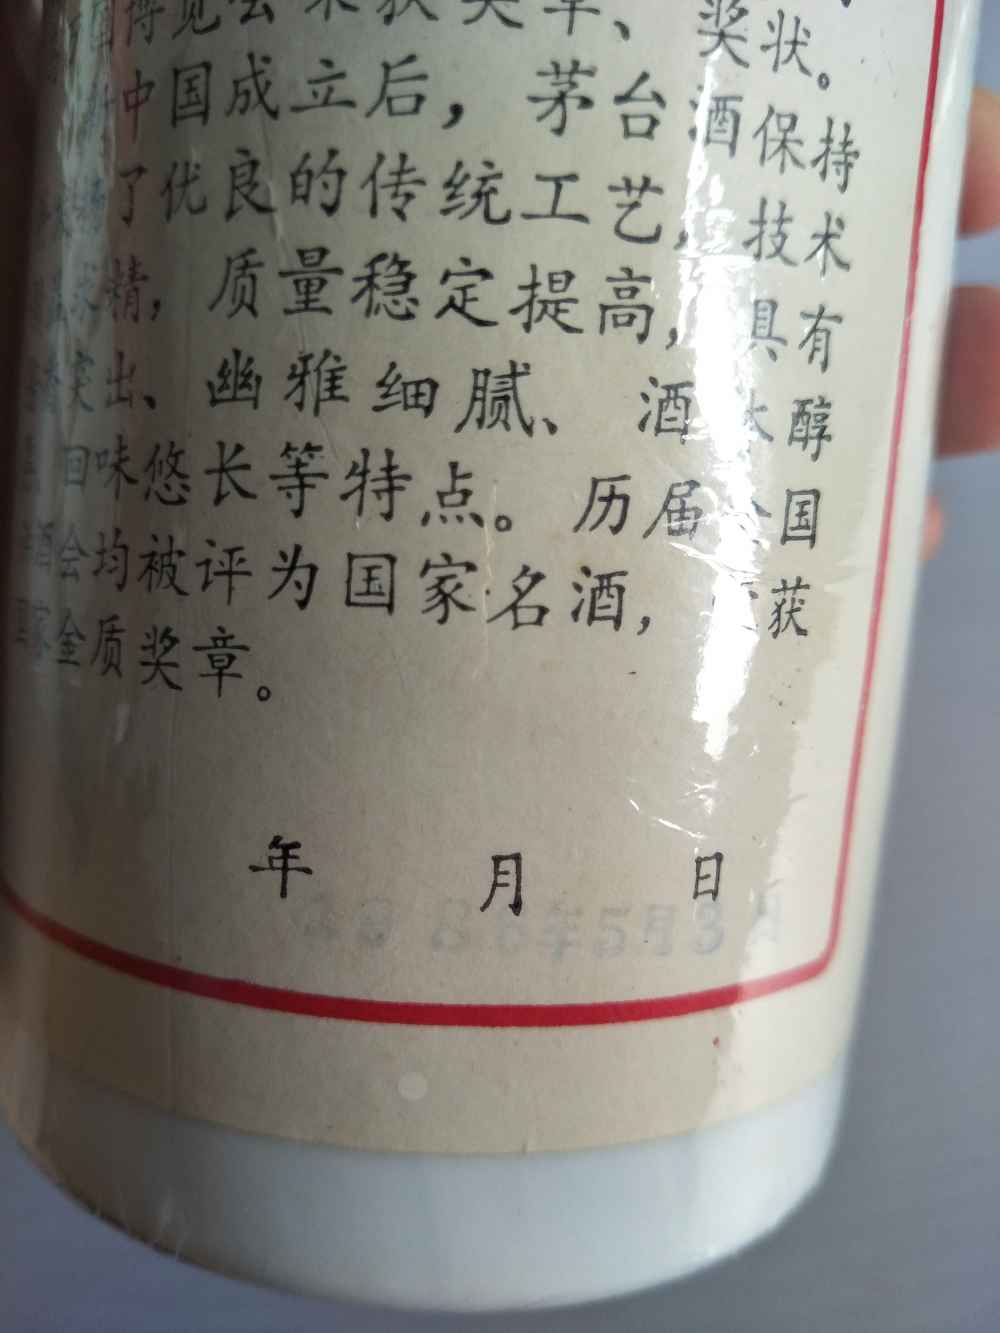 博览会荣获奖章、奖状。
中国成立后，茅台酒保持
了优良的传统工艺，技术
求精，质量稳定提高，具有
突出、幽雅细腻、酒体醇
回味悠长等特点。历届全国
酒会均被评为国家名酒，获
国家金质奖章。
年 月 日
年5月3日